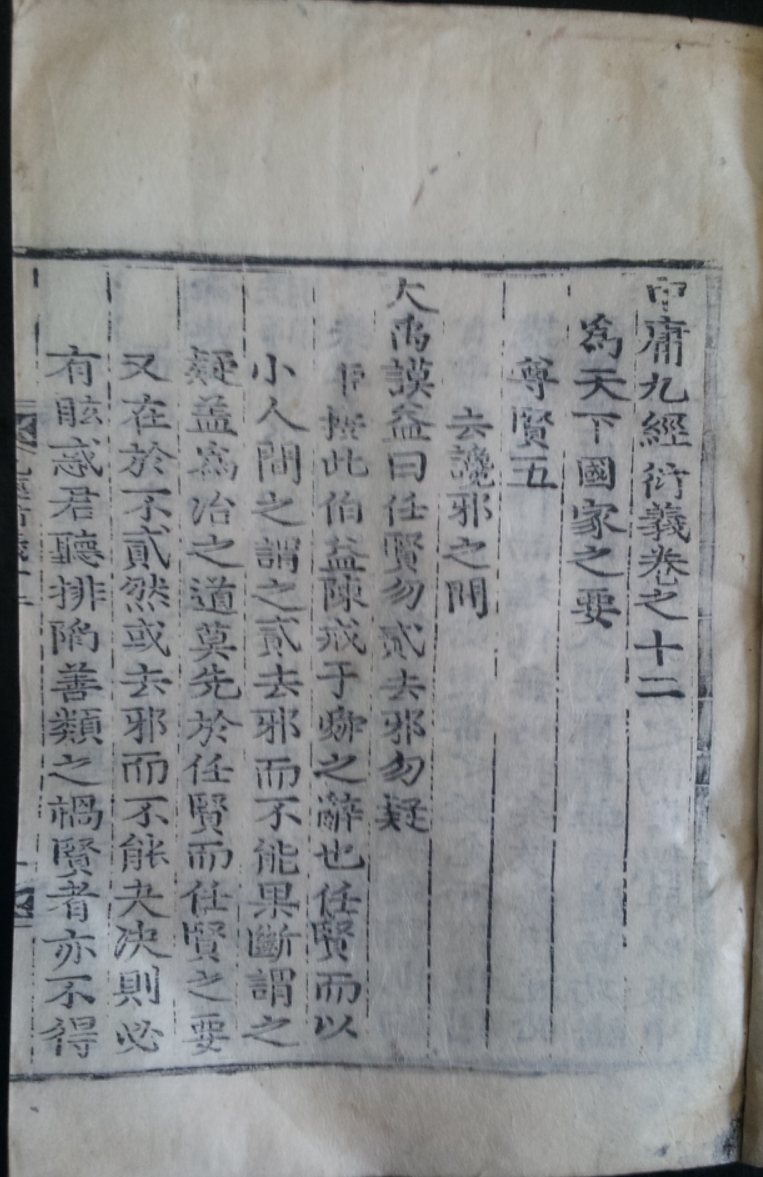 中庸九經衍義卷之十二
爲天下國家之要
尊賢五
去讒邪之間
大禹謨益曰任賢勿貳去邪勿疑
臣按此伯益陳戒于舜之辭也任賢而以
小人間之謂之貳去邪而不能果斷謂之
疑益爲治之道莫先於任賢而任賢之要
又在於不貳然或去邪而不能夬决則必
有眩惑君聽排陷善類之禍賢者亦不得